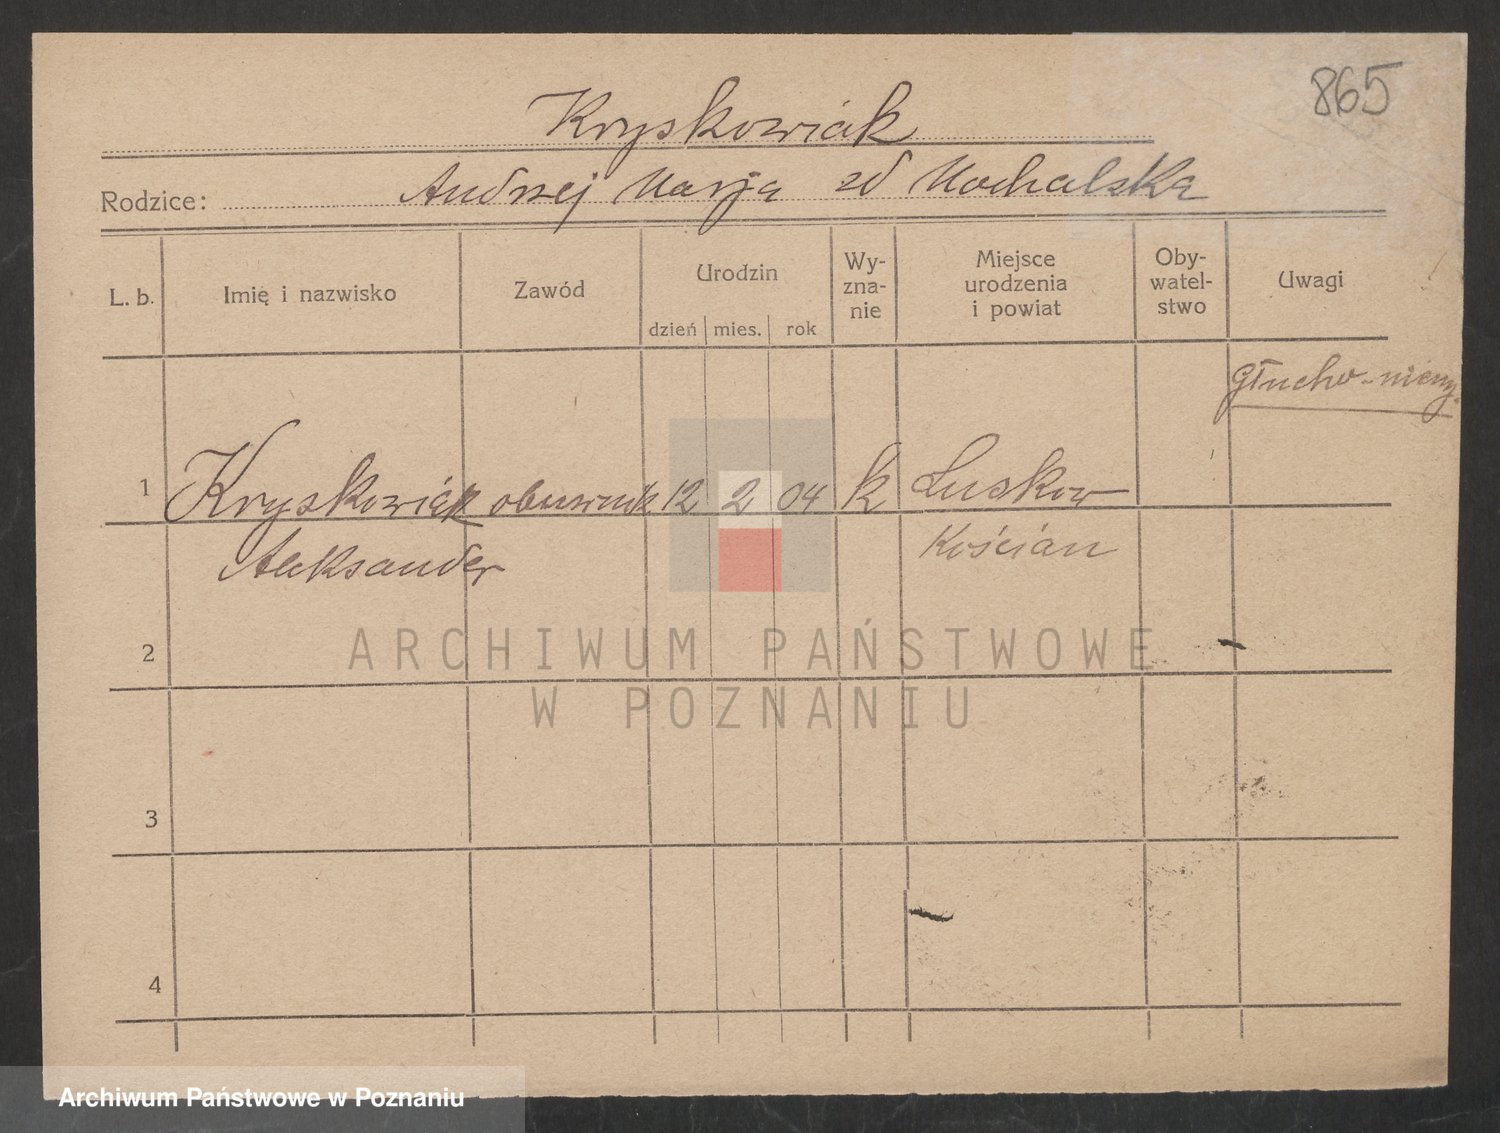 865
Kryskowiak
Rodzice: Andrzej Marja zd Mochalska
L. b. Imię i nazwisko Zawód Urodzin dzień mies. rok Wy-zna-nie Miejsce urodzenia i powiat Oby-watel-stwo Uwagi
głucho-niemy
1 Kryskowiak obuwnik 12 2 04 k Luskow
Aleksander Kościan
2
ARCHIWUM PAŃSTWOWE
W POZNANIU
3
4
Archiwum Państwowe w Poznaniu